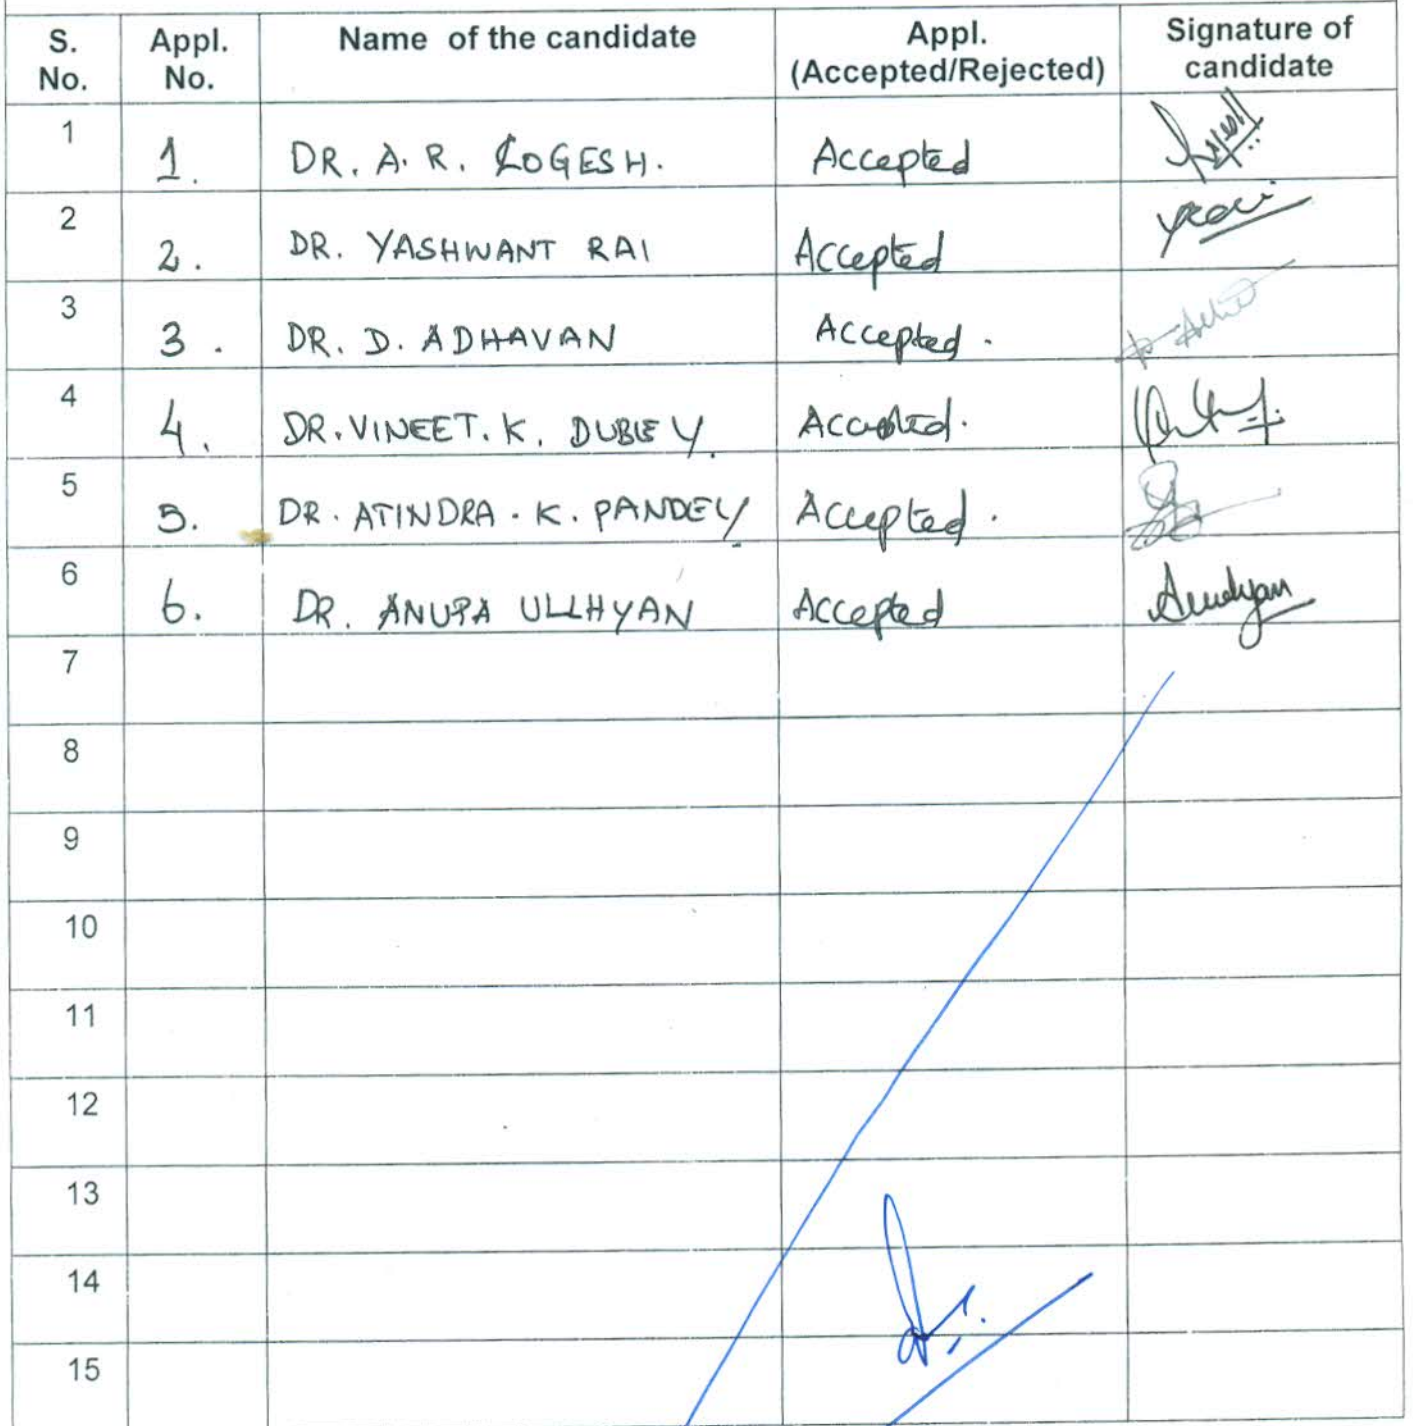 S. No. Appl. No. Name of the candidate Appl. (Accepted/Rejected) Signature of candidate
1 1. DR. A. R. LOGESH. Accepted
2 2. DR. YASHWANT RAI Accepted
3 3. DR. D. ADHAVAN Accepted.
4 4. DR. VINEET. K. DUBEY. Accepted.
5 5. DR. ATINDRA. K. PANDEY Accepted.
6 6. DR. ANUPA ULLHYAN Accepted
7
8
9
10
11
12
13
14
15